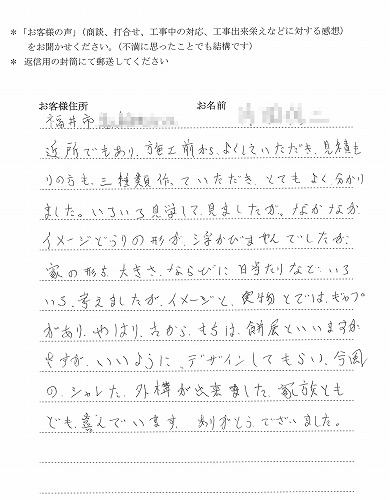 * 「お客様の声」(商談、打合せ、工事中の対応、工事出来栄えなどに対する感想)
をお聞かせください。(不満に思ったことでも結構です)
* 返信用の封筒にて郵送してください
お客様住所 お名前
福井市
近所でもあり、施工前から、よくしていただき、見積も
りの方も、三種類作っていただき、とてもよく分かり
ました。いろいろ見学して、見ましたが、なかなか
イメージどうりの形が、浮かびませんでしたが
家の形や大きさ、ならびに日当たりなど、いろ
いろ、考えましたが、イメージと、実物とでは、ギャップ
があり、やはり、古から、もちは、餅屋といいますが
さすが、いいように、デザインしてもらい、今風
の、シャレた、外構が出来ました、家族とも
ども、喜んでいます。ありがとうございました。